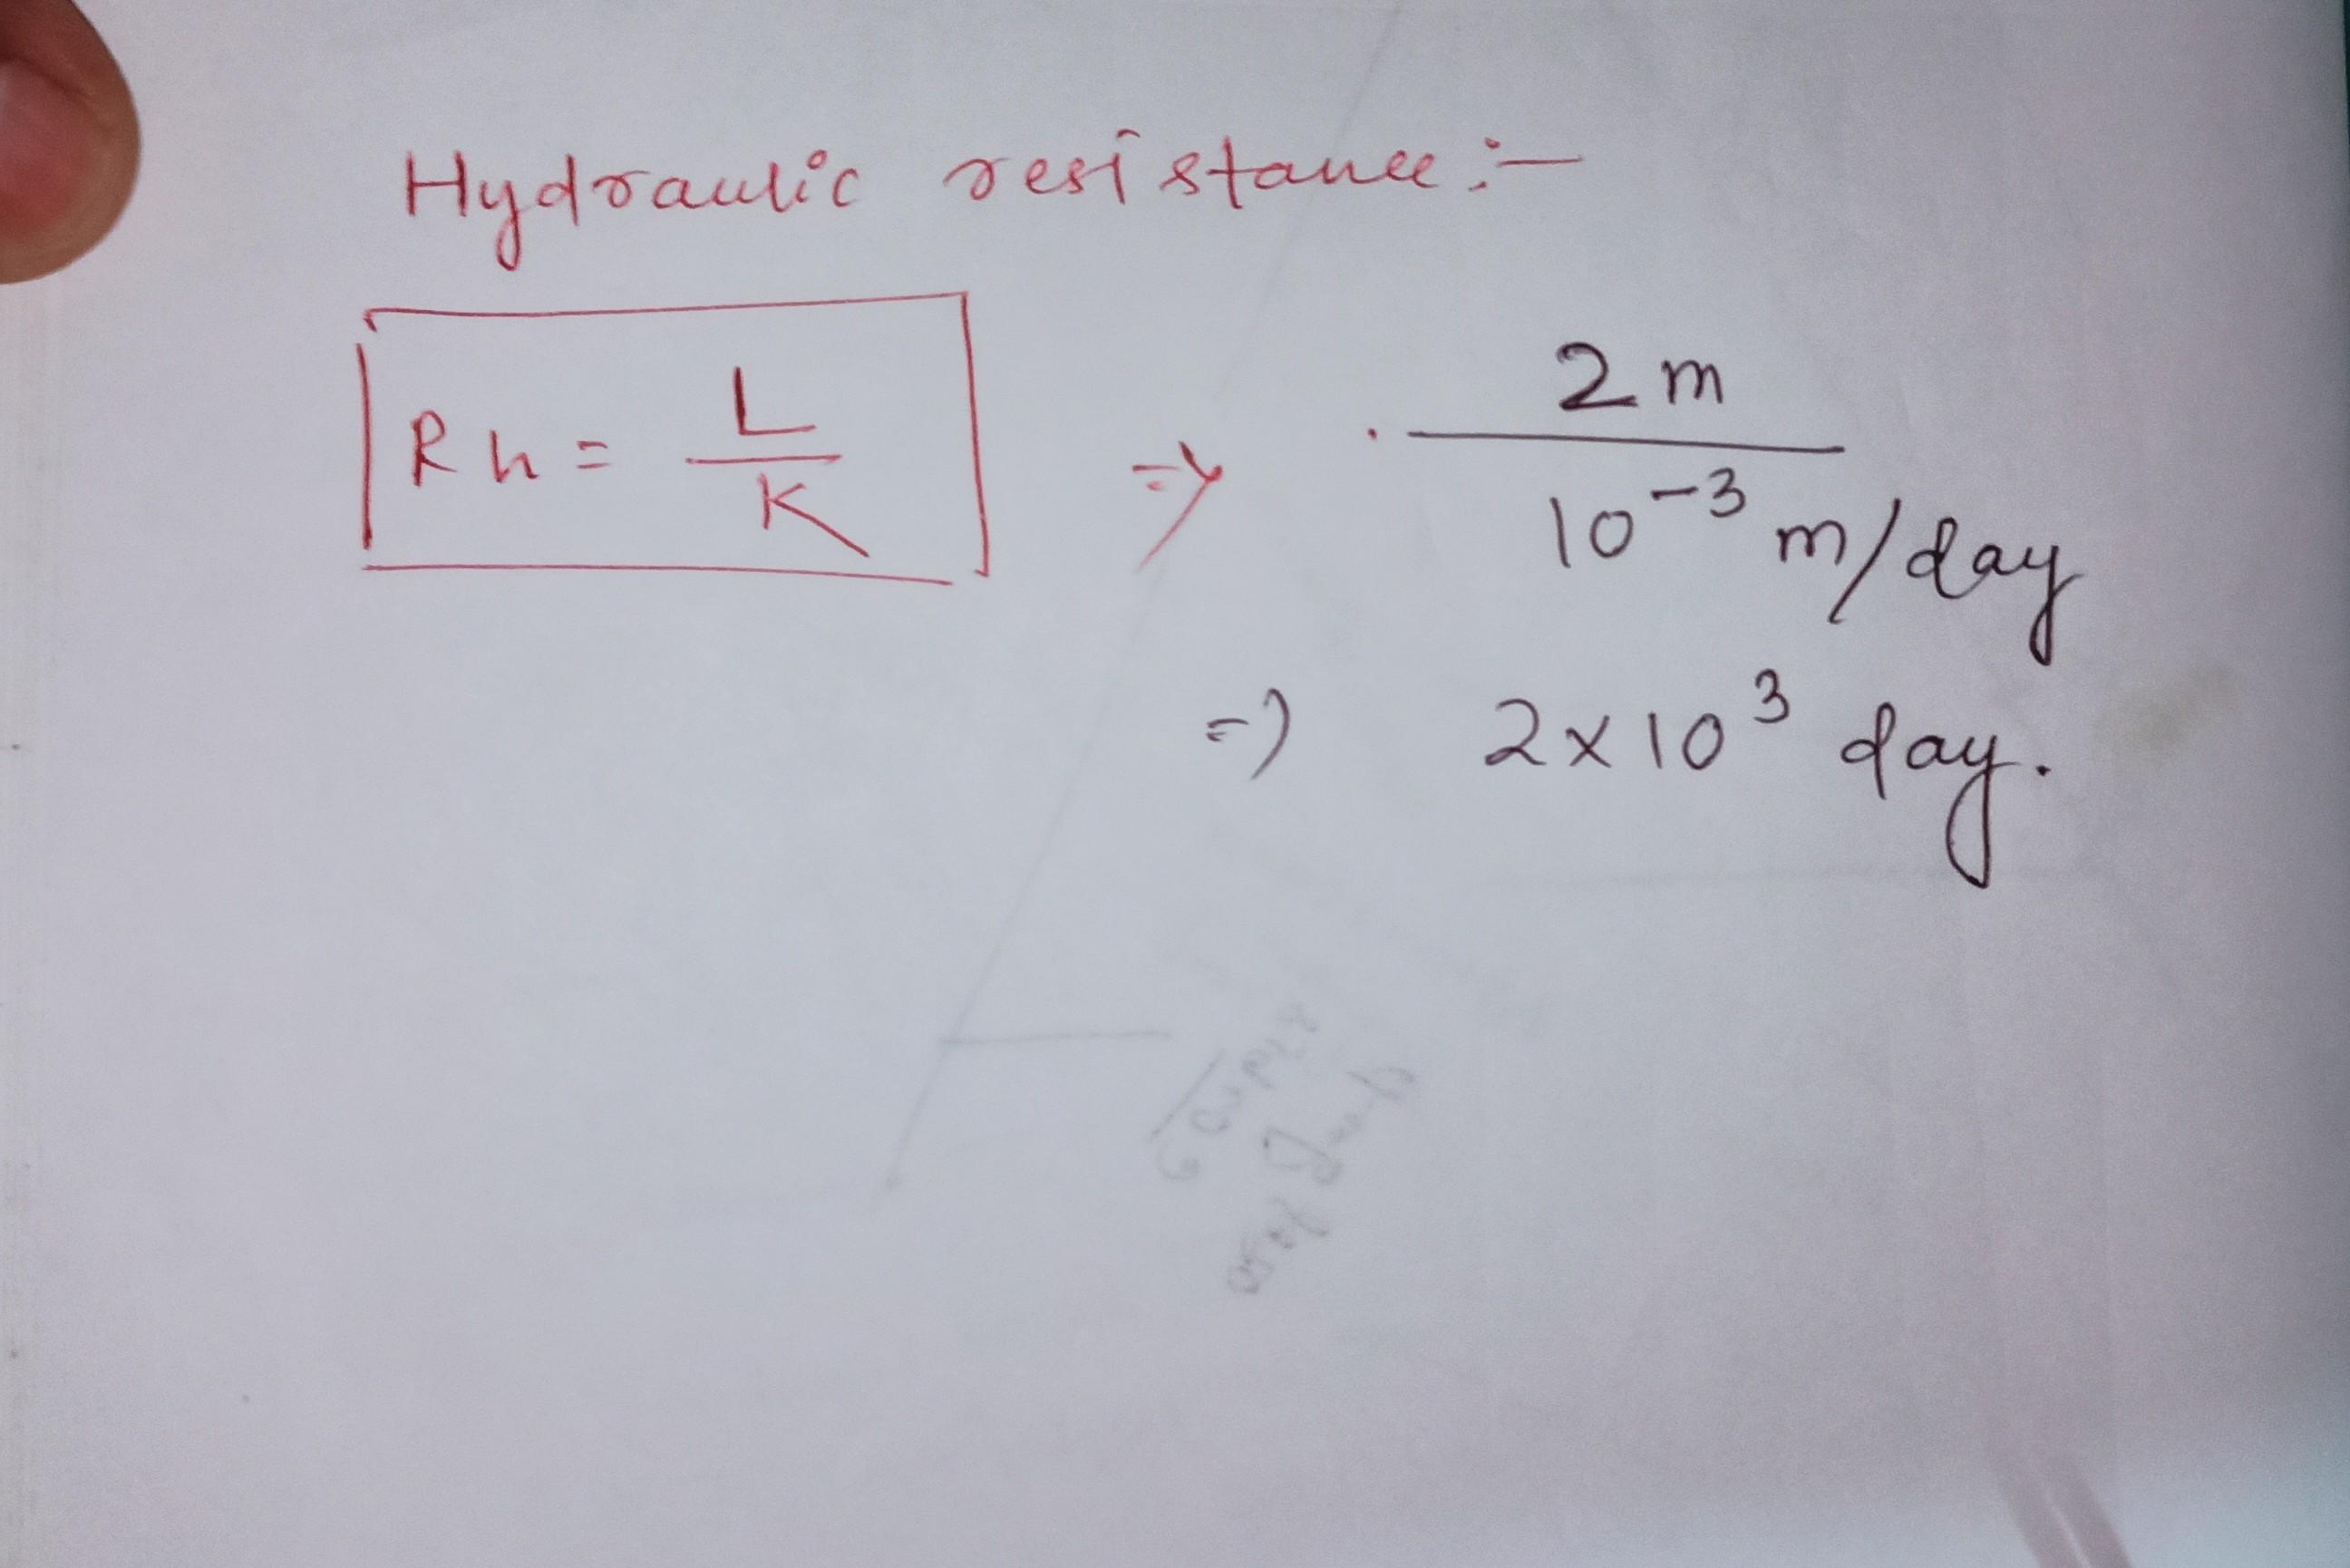 Hydraulic resistance :-
Rh = L/K => 2 m / 10⁻³ m/day
=> 2x10³ day.